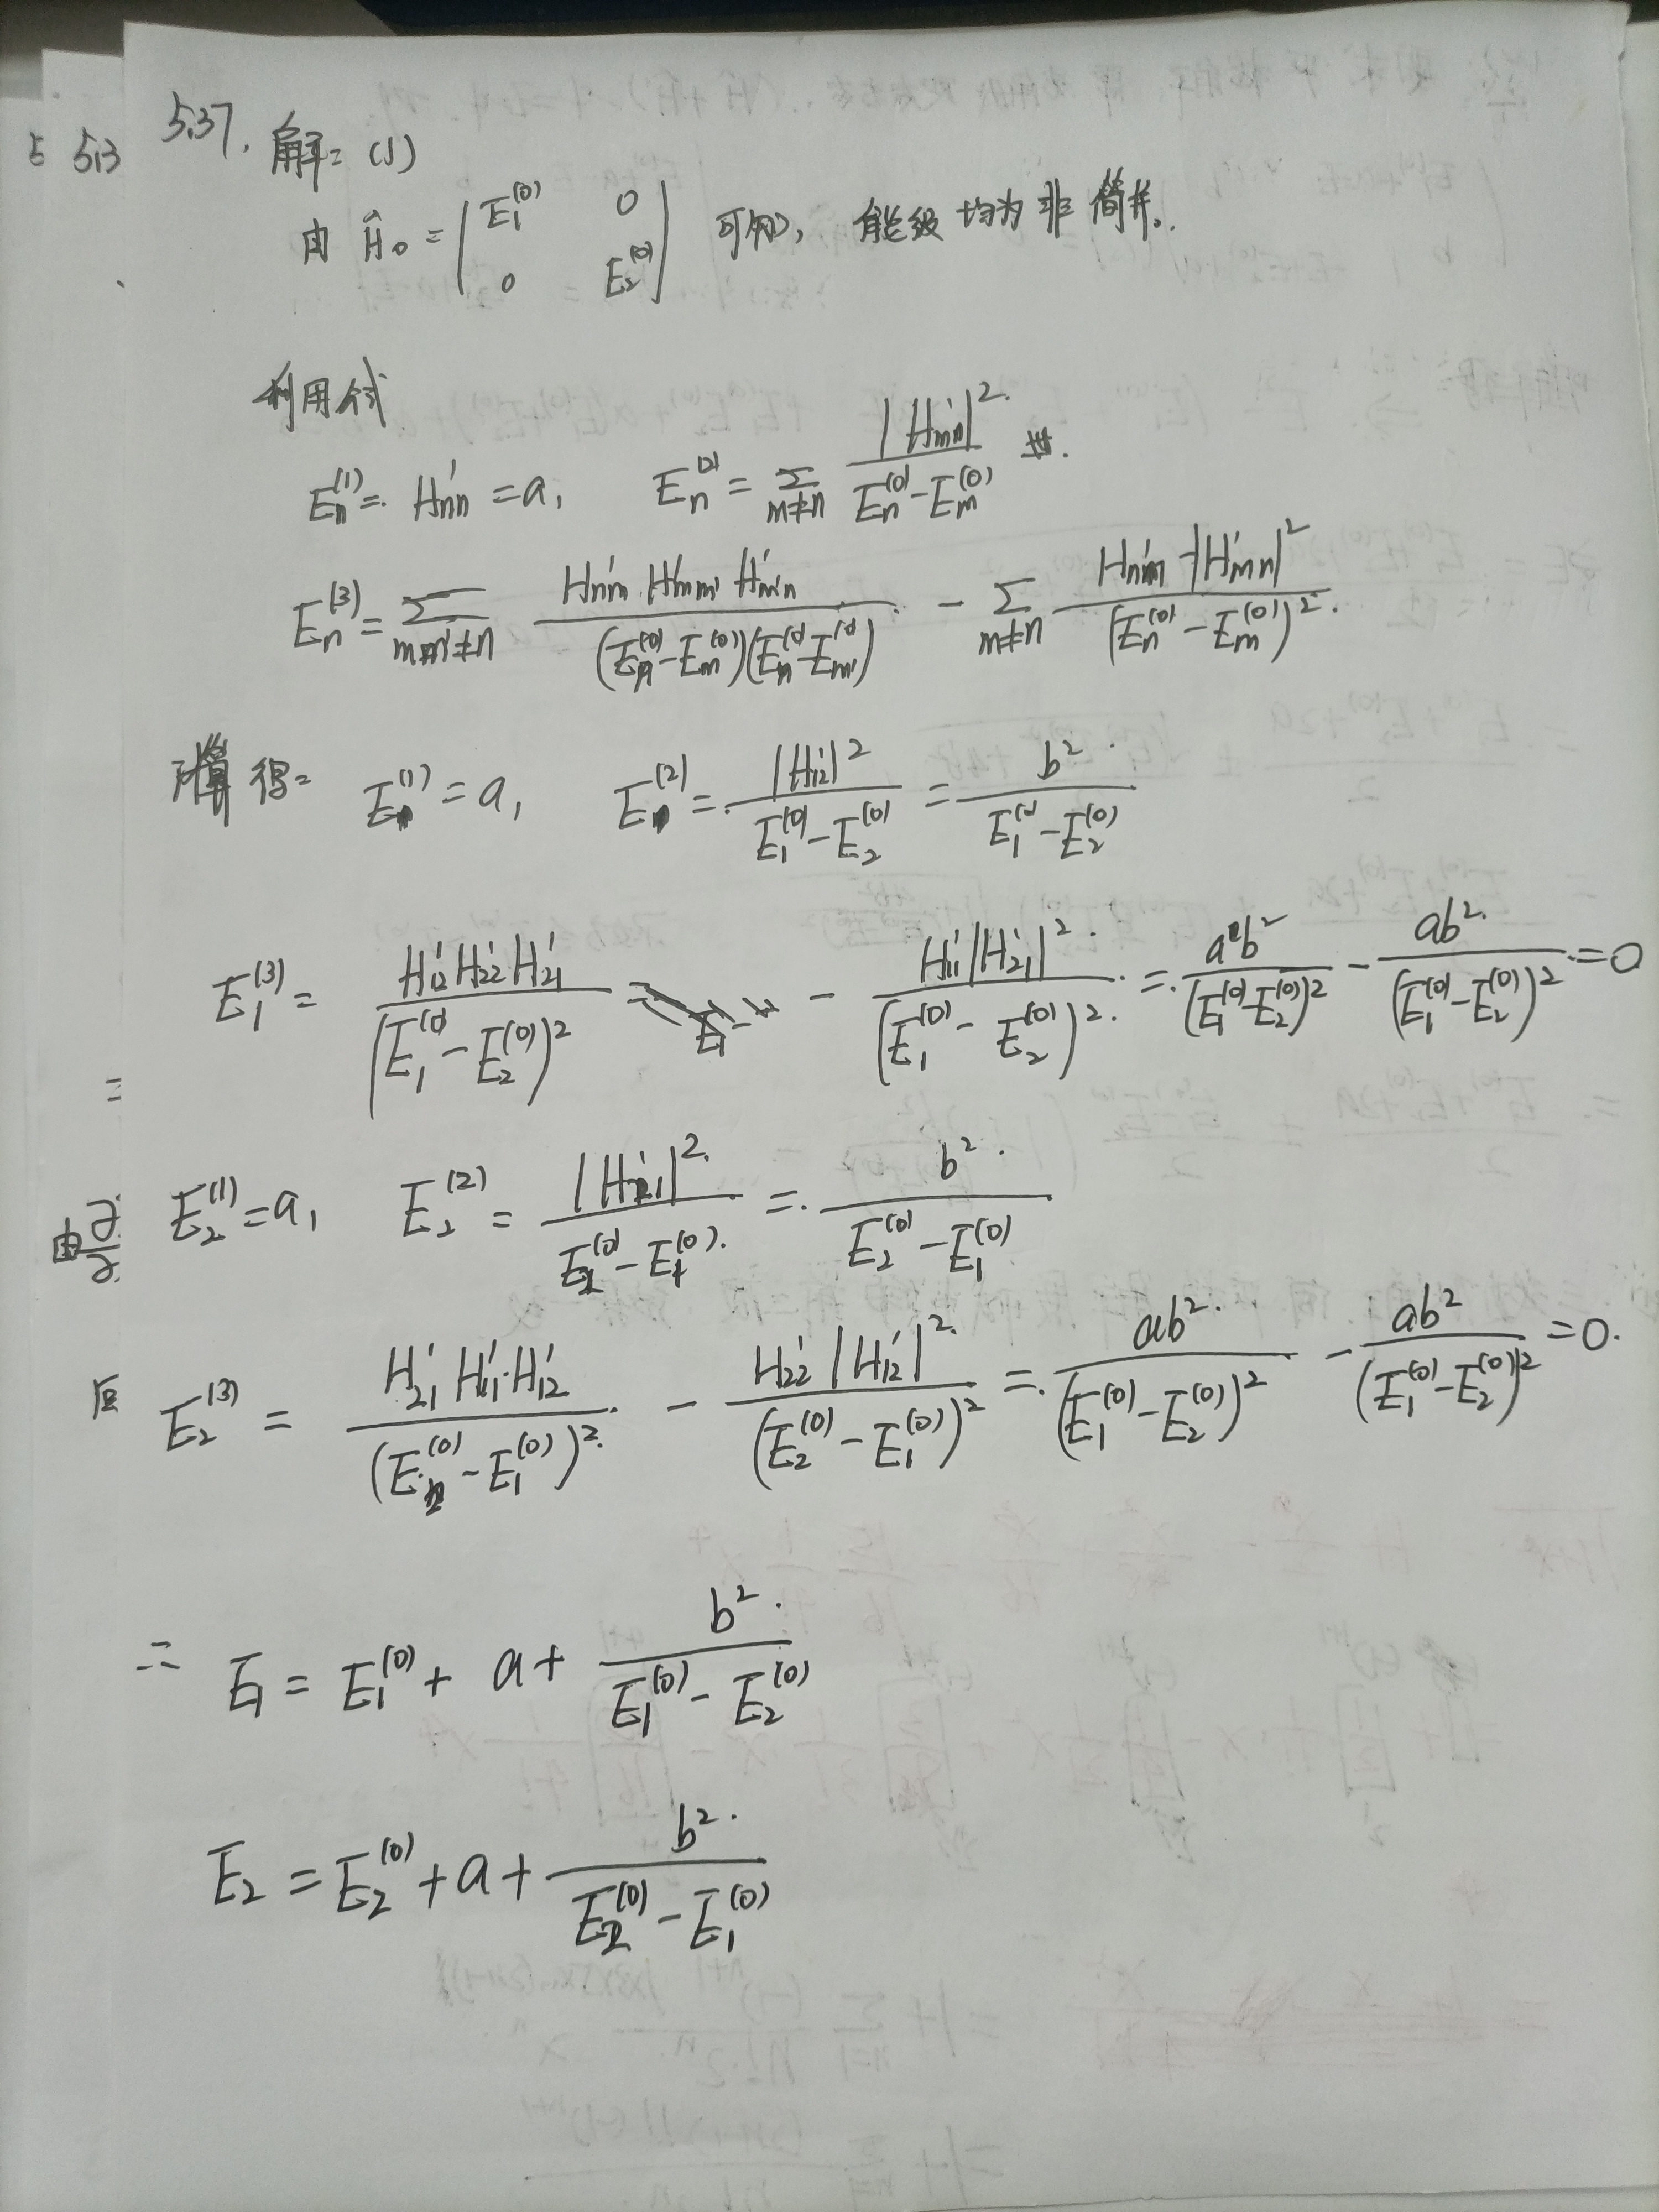 5.37. 解: (1)
由 Ĥ₀ = | E₁⁽⁰⁾ 0 | 可知, 能级均为非简并.
| 0 E₂⁽⁰⁾ |
利用公式
Eₙ⁽¹⁾ = H'ₙₙ = a, Eₙ⁽²⁾ = Σ_{m≠n} |H'ₘₙ|² / (Eₙ⁽⁰⁾ - Eₘ⁽⁰⁾)
Eₙ⁽³⁾ = Σ_{m,m'≠n} H'ₙₘ H'ₘₘ' H'ₘ'ₙ / (Eₙ⁽⁰⁾ - Eₘ⁽⁰⁾)(Eₙ⁽⁰⁾ - Eₘ'⁽⁰⁾) - Σ_{m≠n} H'ₙₘ |H'ₘₙ|² / (Eₙ⁽⁰⁾ - Eₘ⁽⁰⁾)²
得: E₁⁽¹⁾ = a, E₁⁽²⁾ = |H'₁₂|² / (E₁⁽⁰⁾ - E₂⁽⁰⁾) = b² / (E₁⁽⁰⁾ - E₂⁽⁰⁾)
E₁⁽³⁾ = H'₁₂ H'₂₂ H'₂₁ / (E₁⁽⁰⁾ - E₂⁽⁰⁾)² - H'₁₁ |H'₂₁|² / (E₁⁽⁰⁾ - E₂⁽⁰⁾)² = ab² / (E₁⁽⁰⁾ - E₂⁽⁰⁾)² - ab² / (E₁⁽⁰⁾ - E₂⁽⁰⁾)² = 0
E₂⁽¹⁾ = a, E₂⁽²⁾ = |H'₂₁|² / (E₂⁽⁰⁾ - E₁⁽⁰⁾) = b² / (E₂⁽⁰⁾ - E₁⁽⁰⁾)
E₂⁽³⁾ = H'₂₁ H'₁₁ H'₁₂ / (E₂⁽⁰⁾ - E₁⁽⁰⁾)² - H'₂₂ |H'₁₂|² / (E₂⁽⁰⁾ - E₁⁽⁰⁾)² = ab² / (E₁⁽⁰⁾ - E₂⁽⁰⁾)² - ab² / (E₁⁽⁰⁾ - E₂⁽⁰⁾)² = 0.
∴ E₁ = E₁⁽⁰⁾ + a + b² / (E₁⁽⁰⁾ - E₂⁽⁰⁾)
E₂ = E₂⁽⁰⁾ + a + b² / (E₂⁽⁰⁾ - E₁⁽⁰⁾)